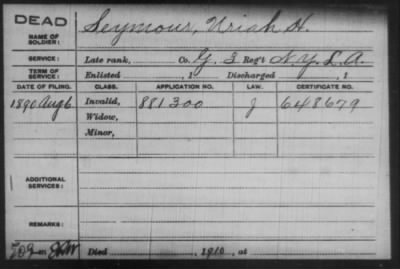 DEAD
NAME OF SOLDIER: Seymour, Uriah H.
SERVICE: Late rank, Co. G, 3 Reg't N.Y. L. A.
TERM OF SERVICE: Enlisted , 1 Discharged , 1
DATE OF FILING. CLASS. APPLICATION NO. LAW. CERTIFICATE NO.
1890 Aug 6 Invalid, 881300 J 648679
Widow,
Minor,
ADDITIONAL SERVICES:
REMARKS:
Died , 1910, at